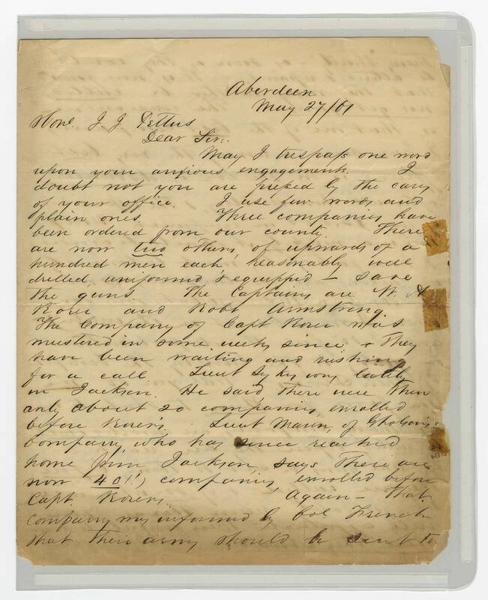 Aberdeen
May 27/61
Honl. J. J. Pettus
Dear Sir.
May I trespass one more
upon your anxious engagements. I
doubt not you are pressed by the cares
of your office. I use few words and
plain ones. Three companies have
been ordered from our county. There
are now two others of upwards of a
hundred men each reasonably well
drilled, uniformed & equipped - save
the guns. The Captains are
Rorer and Robt Armstrong.
The Company of Capt Rorer was
mustered in some weeks since & They
have been waiting and wishing
for a call. Lieut Sykes was lately
in Jackson. He said There were Then
only about 20 companies enrolled
before Rorer's. Lieut Mann, of Gholson's
company, who has since reached
home from Jackson, says There are
now 40!!, companies enrolled before
Capt Rorers. Again - that
company was informed by Col French
that their army should be sent to